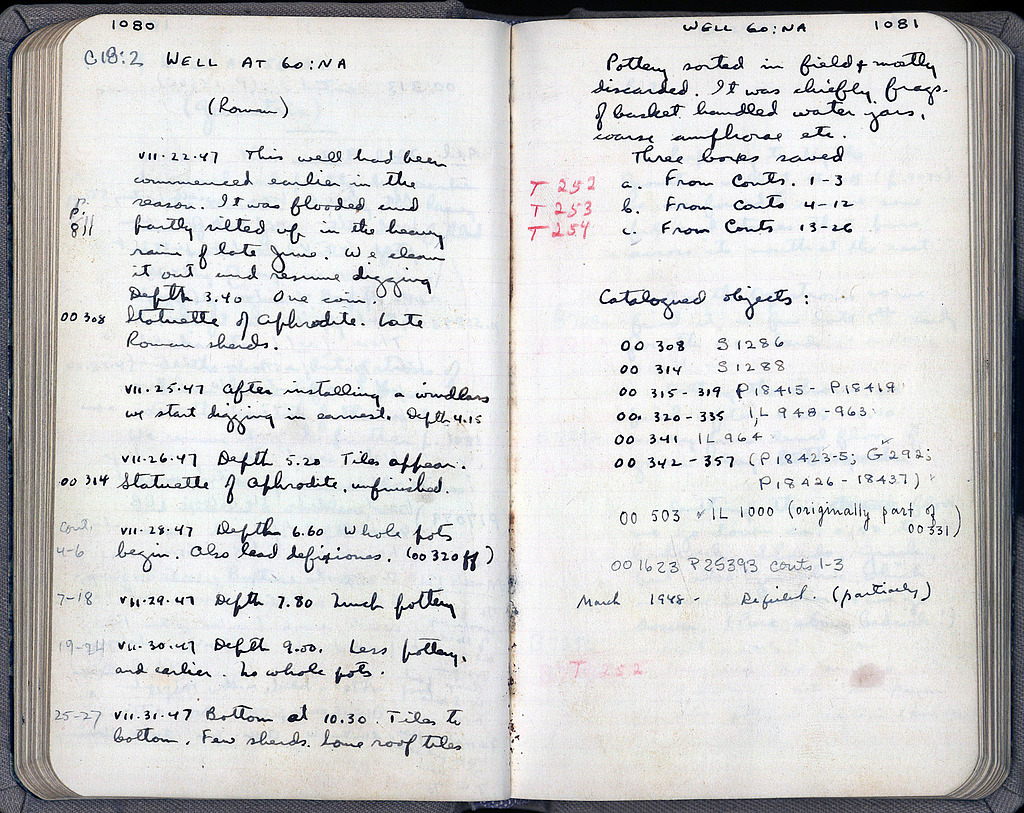 1080
C18:2 WELL AT 60:NA
(Roman)
VII.22.47 This well had been
commenced earlier in the
season. It was flooded and
p.
p.
811
partly silted up in the heavy
rains of late June. We clean
it out and resume digging
Depth 3.40 One coin.
OO 308 Statuette of Aphrodite. Late
Roman sherds.
VII.25.47 After installing a windlass
we start digging in earnest. Depth 4.15
VII.26.47 Depth 5.20 Tiles appear.
OO 314 Statuette of Aphrodite, unfinished.
Cont. VII.28.47 Depth 6.60 Whole pots
4-6 begin. Also lead defixiones. (OO 320 ff)
7-18 VII.29.47 Depth 7.80 Much pottery
19-24 VII.30.47 Depth 9.00. Less pottery,
and earlier. No whole pots.
25-27 VII.31.47 Bottom at 10.30. Tiles to
bottom. Few sherds. Some roof tiles
WELL 60:NA 1081
Pottery sorted in field & mostly
discarded. It was chiefly frags.
of basket handled water jars,
coarse amphorae etc.
Three boxes saved
T 252 a. From Conts. 1-3
T 253 b. From Conts 4-12
T 254 c. From Conts 13-26
Catalogued objects:
OO 308 S 1286
OO 314 S 1288
OO 315-319 P 18415 - P 18419
OO 320-335 IL 948-963
OO 341 IL 964
OO 342-357 (P 18423-5; G 292;
P 18426 - 18437)
OO 503 IL 1000 (originally part of
OO 331)
OO 1623 P 25393 conts 1-3
March 1948 - Refilled. (partially)
T 252